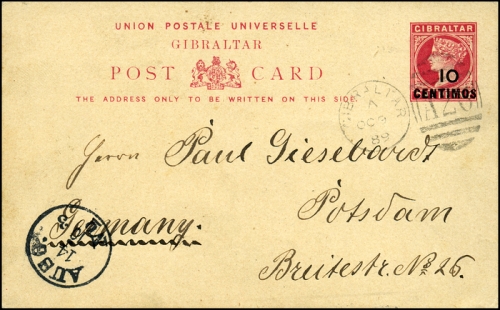 UNION POSTALE UNIVERSELLE
GIBRALTAR
POST CARD
THE ADDRESS ONLY TO BE WRITTEN ON THIS SIDE
GIBRALTAR
10
CENTIMOS
GIBRALTAR
OC 9
89
A26
Herrn Paul Giesebardt
Potsdam
Germany.
Breitestr. No 26.
AUSG.
14